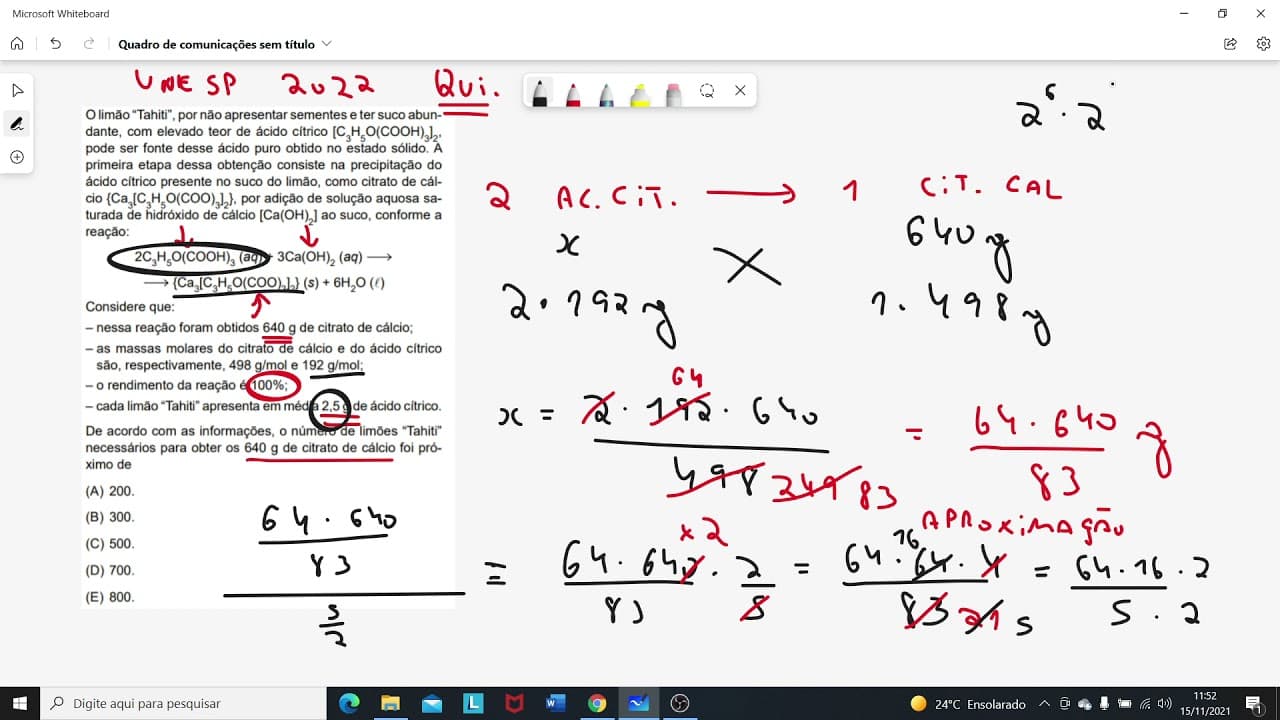 Microsoft Whiteboard
Quadro de comunicações sem título
UNESP 2022 Qui.
O limão “Tahiti”, por não apresentar sementes e ter suco abun-
dante, com elevado teor de ácido cítrico [C3H5O(COOH)3]2,
pode ser fonte desse ácido puro obtido no estado sólido. A
primeira etapa dessa obtenção consiste na precipitação do
ácido cítrico presente no suco do limão, como citrato de cál-
cio {Ca3[C3H5O(COO)3]2}, por adição de solução aquosa sa-
turada de hidróxido de cálcio [Ca(OH)2] ao suco, conforme a
reação:
2C3H5O(COOH)3 (aq) + 3Ca(OH)2 (aq) ⟶
⟶ {Ca3[C3H5O(COO)3]2} (s) + 6H2O (ℓ)
Considere que:
– nessa reação foram obtidos 640 g de citrato de cálcio;
– as massas molares do citrato de cálcio e do ácido cítrico
são, respectivamente, 498 g/mol e 192 g/mol;
– o rendimento da reação é 100%;
– cada limão “Tahiti” apresenta em média 2,5 g de ácido cítrico.
De acordo com as informações, o número de limões “Tahiti”
necessários para obter os 640 g de citrato de cálcio foi pró-
ximo de
(A) 200.
(B) 300.
(C) 500.
(D) 700.
(E) 800.
64 . 640
83
5
2
2⁶ . 2
2 AC. CIT. ⟶ 1 CIT. CAL
x 640 g
2 . 192 g 1 . 498 g
64
x = 2 . 192 . 640 = 64 . 640 g
498 249 83 83
x 2 APROXIMAÇÃO
16
= 64 . 640 . 2 = 64 . 64 . 4 = 64 . 16 . 2
83 5 83 21 5 5 . 2
Digite aqui para pesquisar
24°C Ensolarado
11:52
15/11/2021